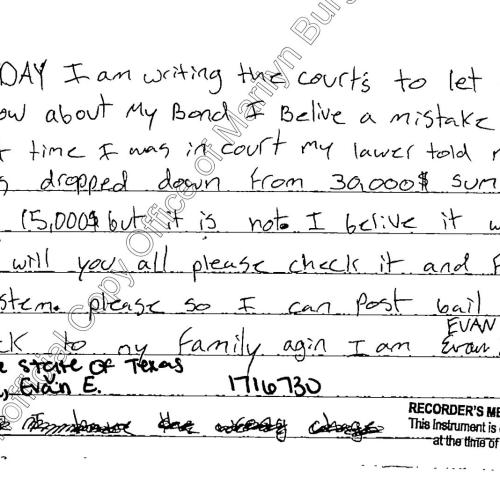 DAY I am writing the courts to let
ow about My Bond I Belive a mistake
time I was in court my lawer told
dropped down from 30,000$ sum
15,000$ but it is not. I belive it w
will you all please check it and F
stem. please so I can post bail
ck to my family agin I am Evan
EVAN
e State of Texas
, Evan E. 1716730
RECORDER'S ME
This instrument is
at the time of
Unofficial Copy Office of Marilyn Bur